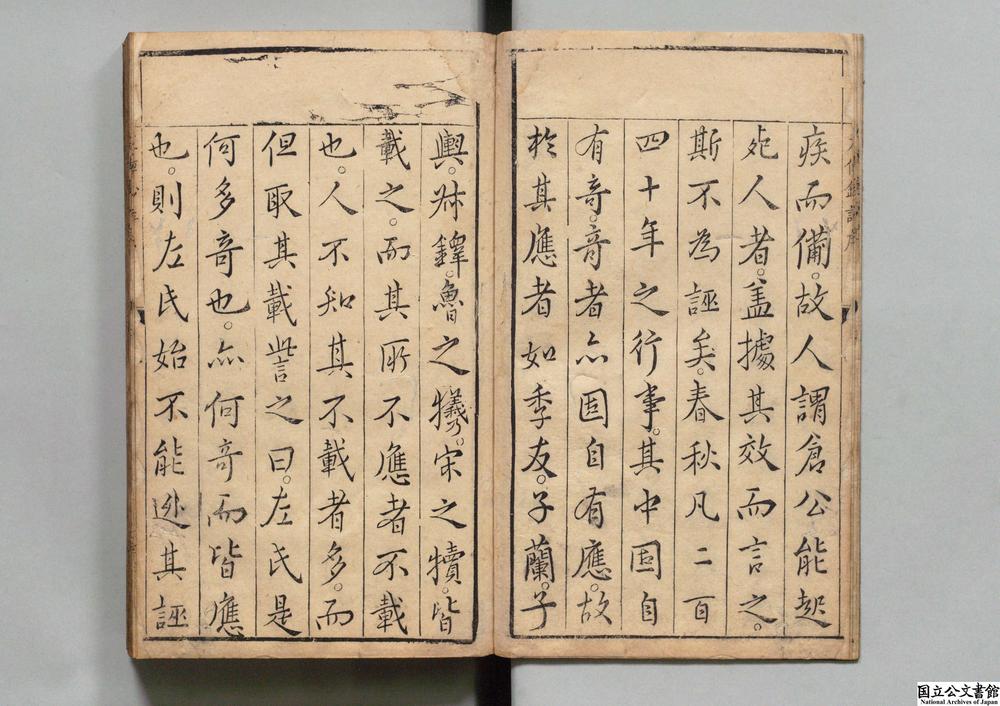 疾而備。故人謂倉公能起
死人者。盖據其效而言之。
斯不為誣矣。春秋凡二百
四十年之行事。其中固自
有奇。奇者亦固自有應。故
於其應者如季友。子蘭。子
輿。妳鐸。魯之犧。宋之犢。皆
載之。而其所不應者不載
也。人不知其不載者多。而
但取其載訾之曰。左氏是
何多奇也。亦何奇而皆應
也。則左氏始不能逃其誣
国立公文書館
National Archives of Japan